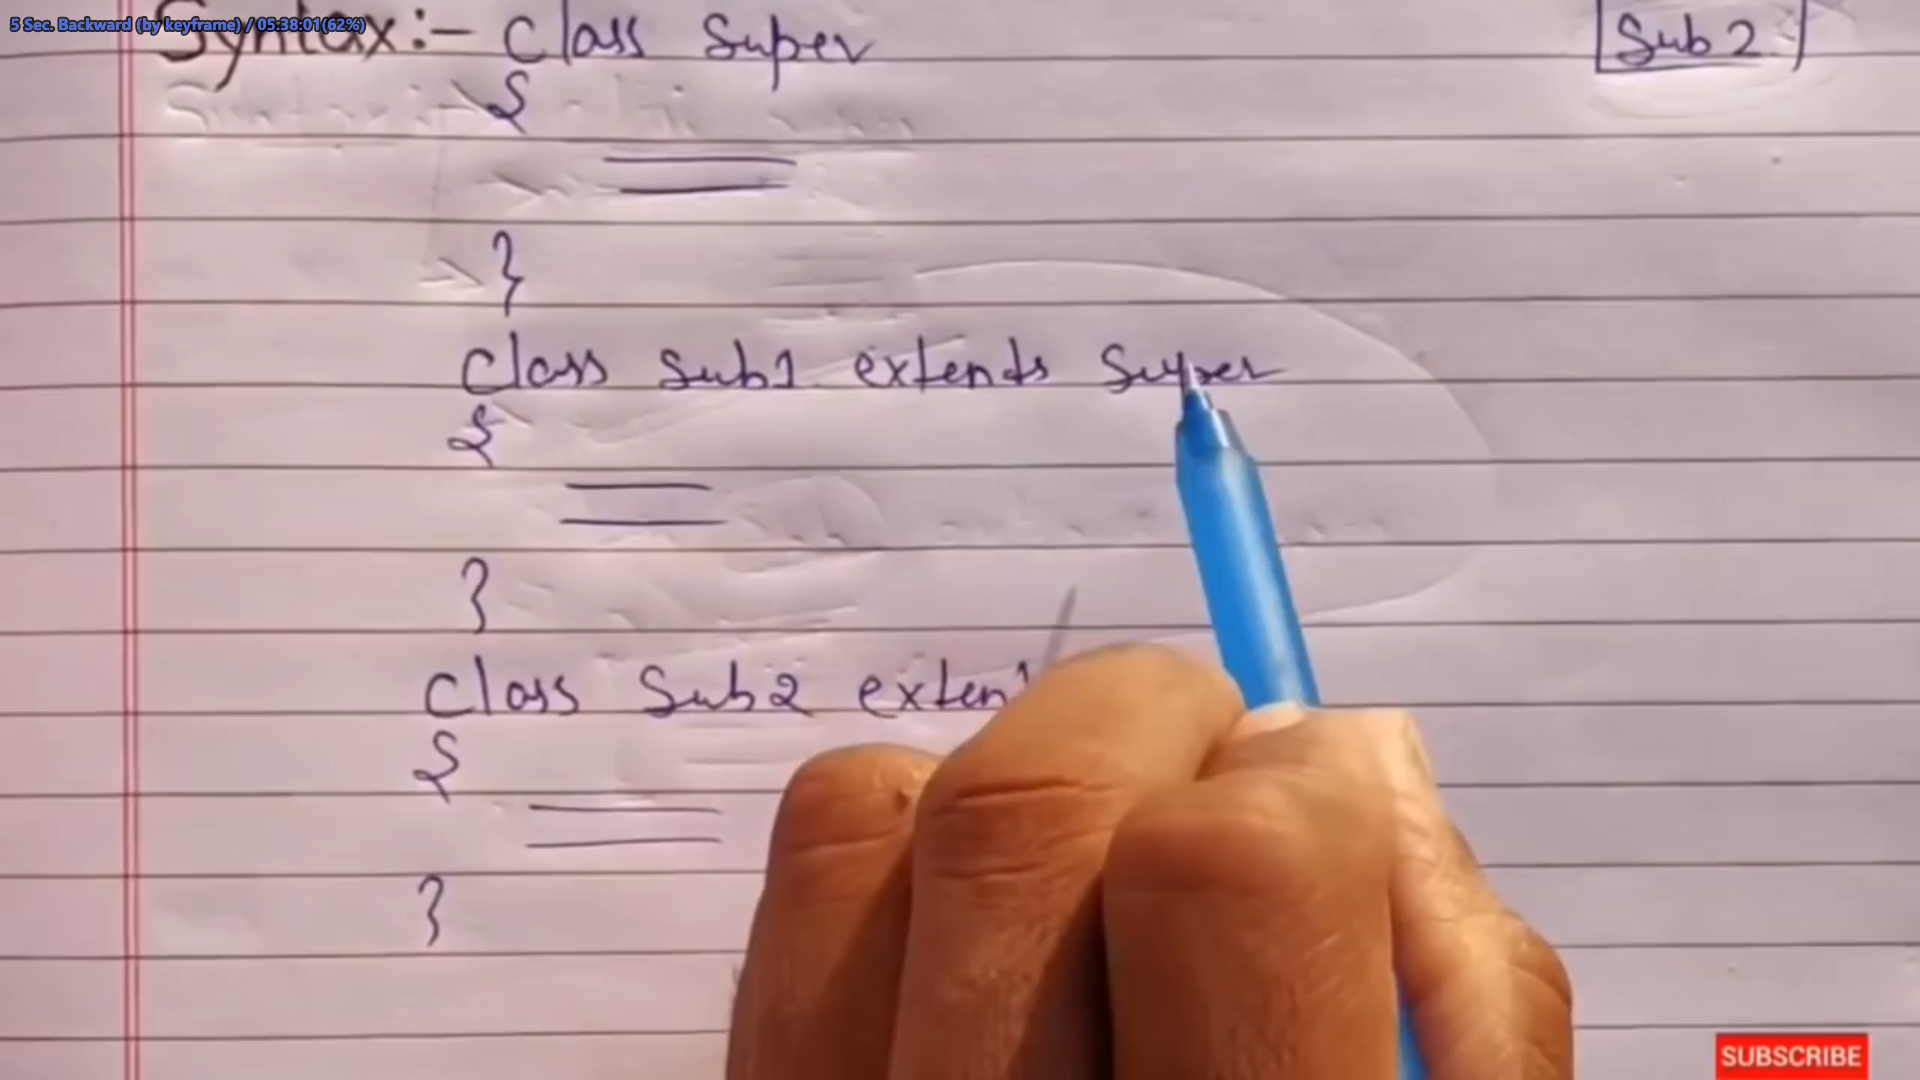 5 Sec. Backward (by keyframe) / 05:38:01(62%)
Syntax:- Class Super
{
}
Class Sub1 extends Super
{
}
Class Sub2 exten
{
}
Sub 2
SUBSCRIBE